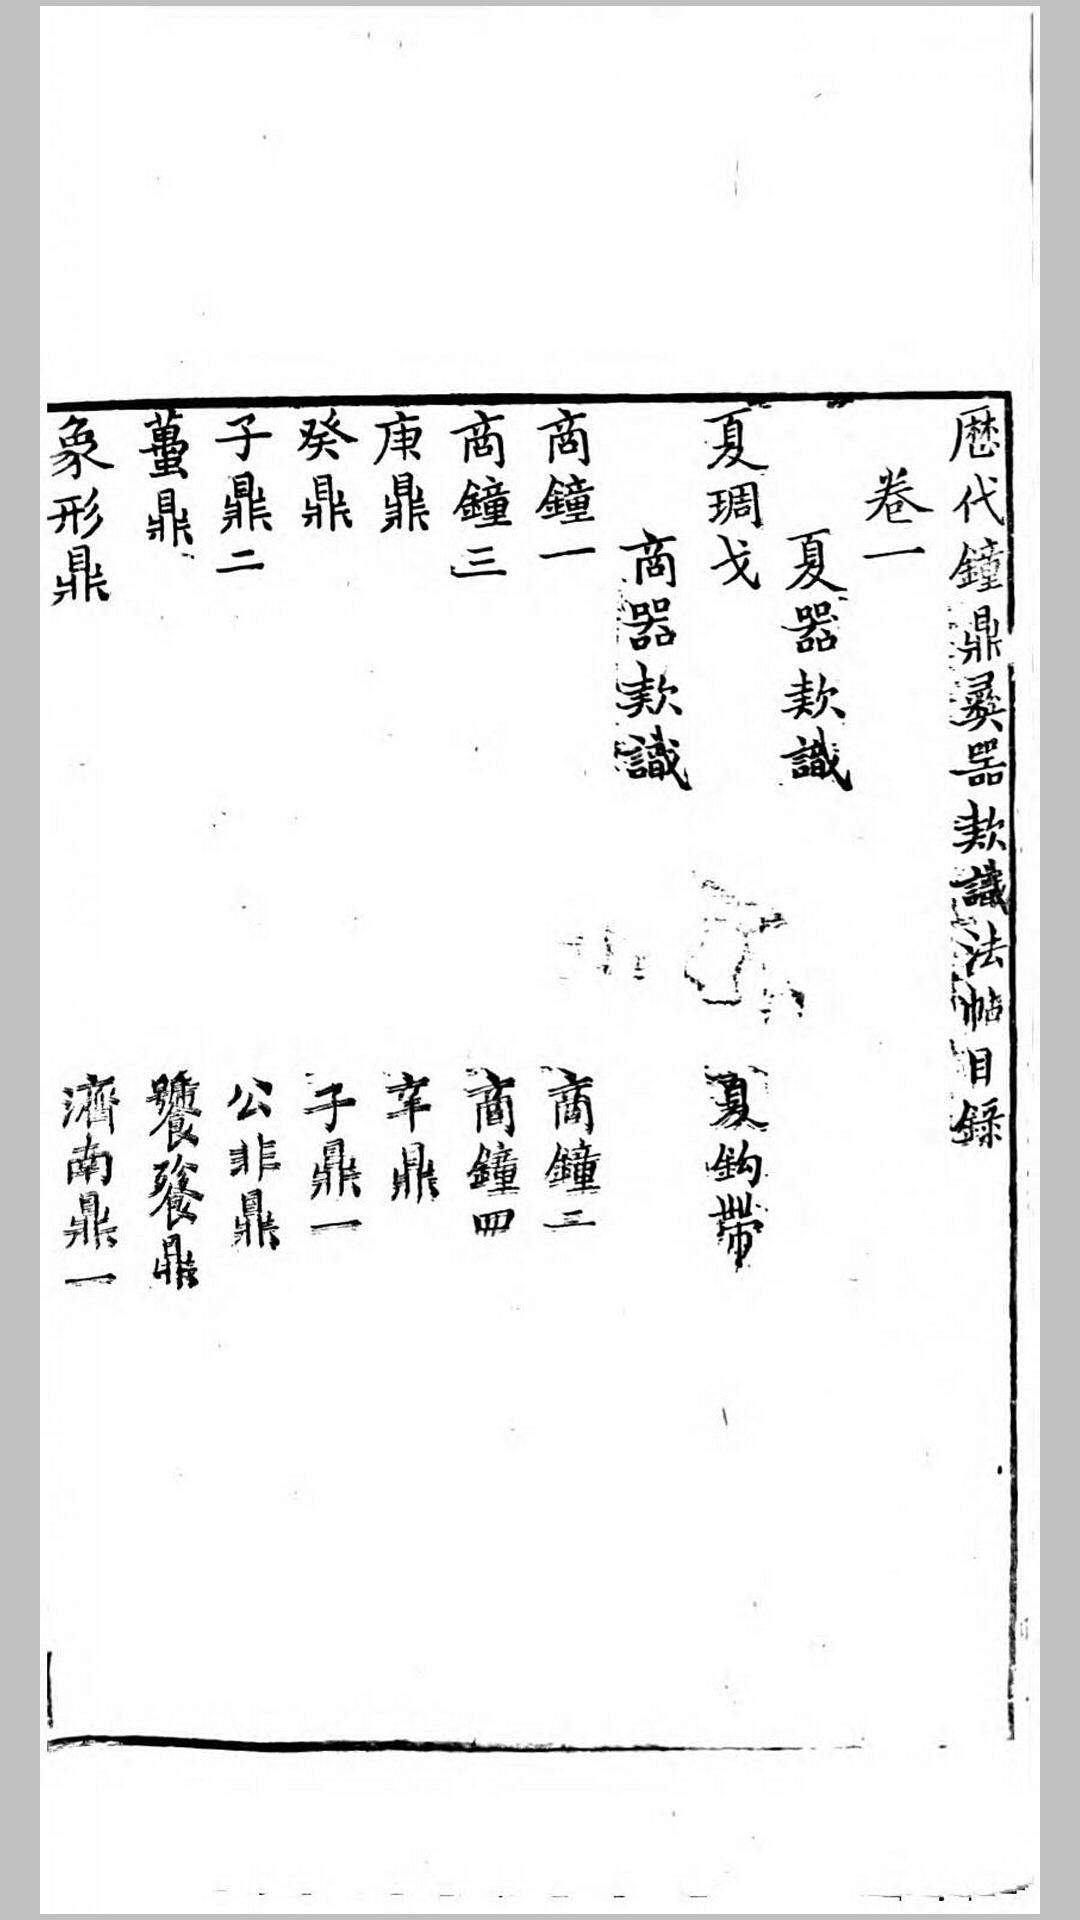 歷代鐘鼎彛器款識法帖目録
卷一
夏器款識
夏琱戈 夏鈎帶
商器款識
商鐘一 商鐘二
商鐘三 商鐘四
庚鼎 辛鼎
癸鼎 子鼎一
子鼎二 公非鼎
蠆鼎 饕餮鼎
象形鼎 濟南鼎一